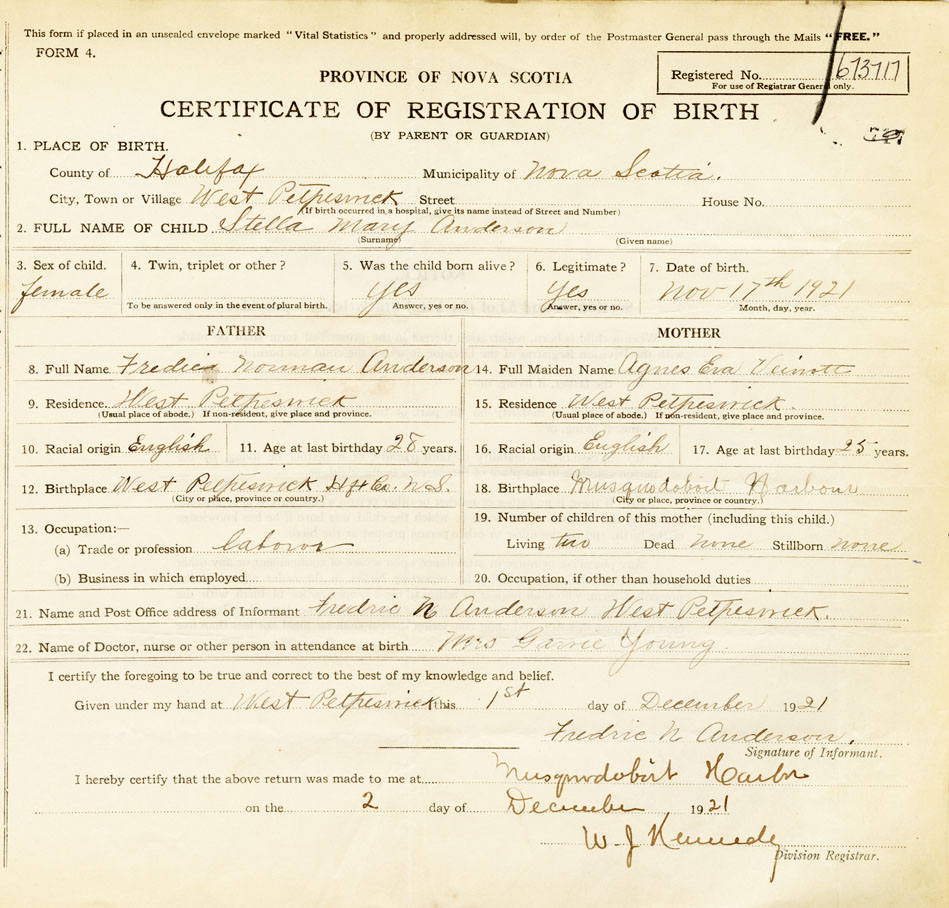 This form if placed in an unsealed envelope marked "Vital Statistics" and properly addressed will, by order of the Postmaster General pass through the Mails "FREE."
FORM 4.
PROVINCE OF NOVA SCOTIA
Registered No. 673717
For use of Registrar General only.
CERTIFICATE OF REGISTRATION OF BIRTH
(BY PARENT OR GUARDIAN)
1. PLACE OF BIRTH.
County of Halifax Municipality of Nova Scotia.
City, Town or Village West Petpeswick Street House No.
(If birth occurred in a hospital, give its name instead of Street and Number)
2. FULL NAME OF CHILD Stella Mary Anderson
(Surname) (Given name)
3. Sex of child. 4. Twin, triplet or other? 5. Was the child born alive? 6. Legitimate? 7. Date of birth.
female yes yes Nov 17th 1921
To be answered only in the event of plural birth. Answer, yes or no. Answer, yes or no. Month, day, year.
FATHER MOTHER
8. Full Name Fredic Norman Anderson 14. Full Maiden Name Agnes Eva Veinott
9. Residence. West Petpeswick 15. Residence West Petpeswick.
(Usual place of abode.) If non-resident, give place and province. (Usual place of abode.) If non-resident, give place and province.
10. Racial origin English 11. Age at last birthday 28 years. 16. Racial origin English 17. Age at last birthday 25 years.
12. Birthplace West Petpeswick Hfx Co. N.S. 18. Birthplace Musquodoboit Harbour
(City or place, province or country.) (City or place, province or country.)
13. Occupation:— 19. Number of children of this mother (including this child.)
(a) Trade or profession labour Living two Dead none Stillborn none
(b) Business in which employed 20. Occupation, if other than household duties
21. Name and Post Office address of Informant Fredric N Anderson West Petpeswick.
22. Name of Doctor, nurse or other person in attendance at birth Mrs Young
I certify the foregoing to be true and correct to the best of my knowledge and belief.
Given under my hand at West Petpeswick this 1st day of December 1921
Fredric N Anderson.
Signature of Informant.
I hereby certify that the above return was made to me at Musquodoboit Harbor
on the 2 day of December 1921
W. J Kennedy
Division Registrar.